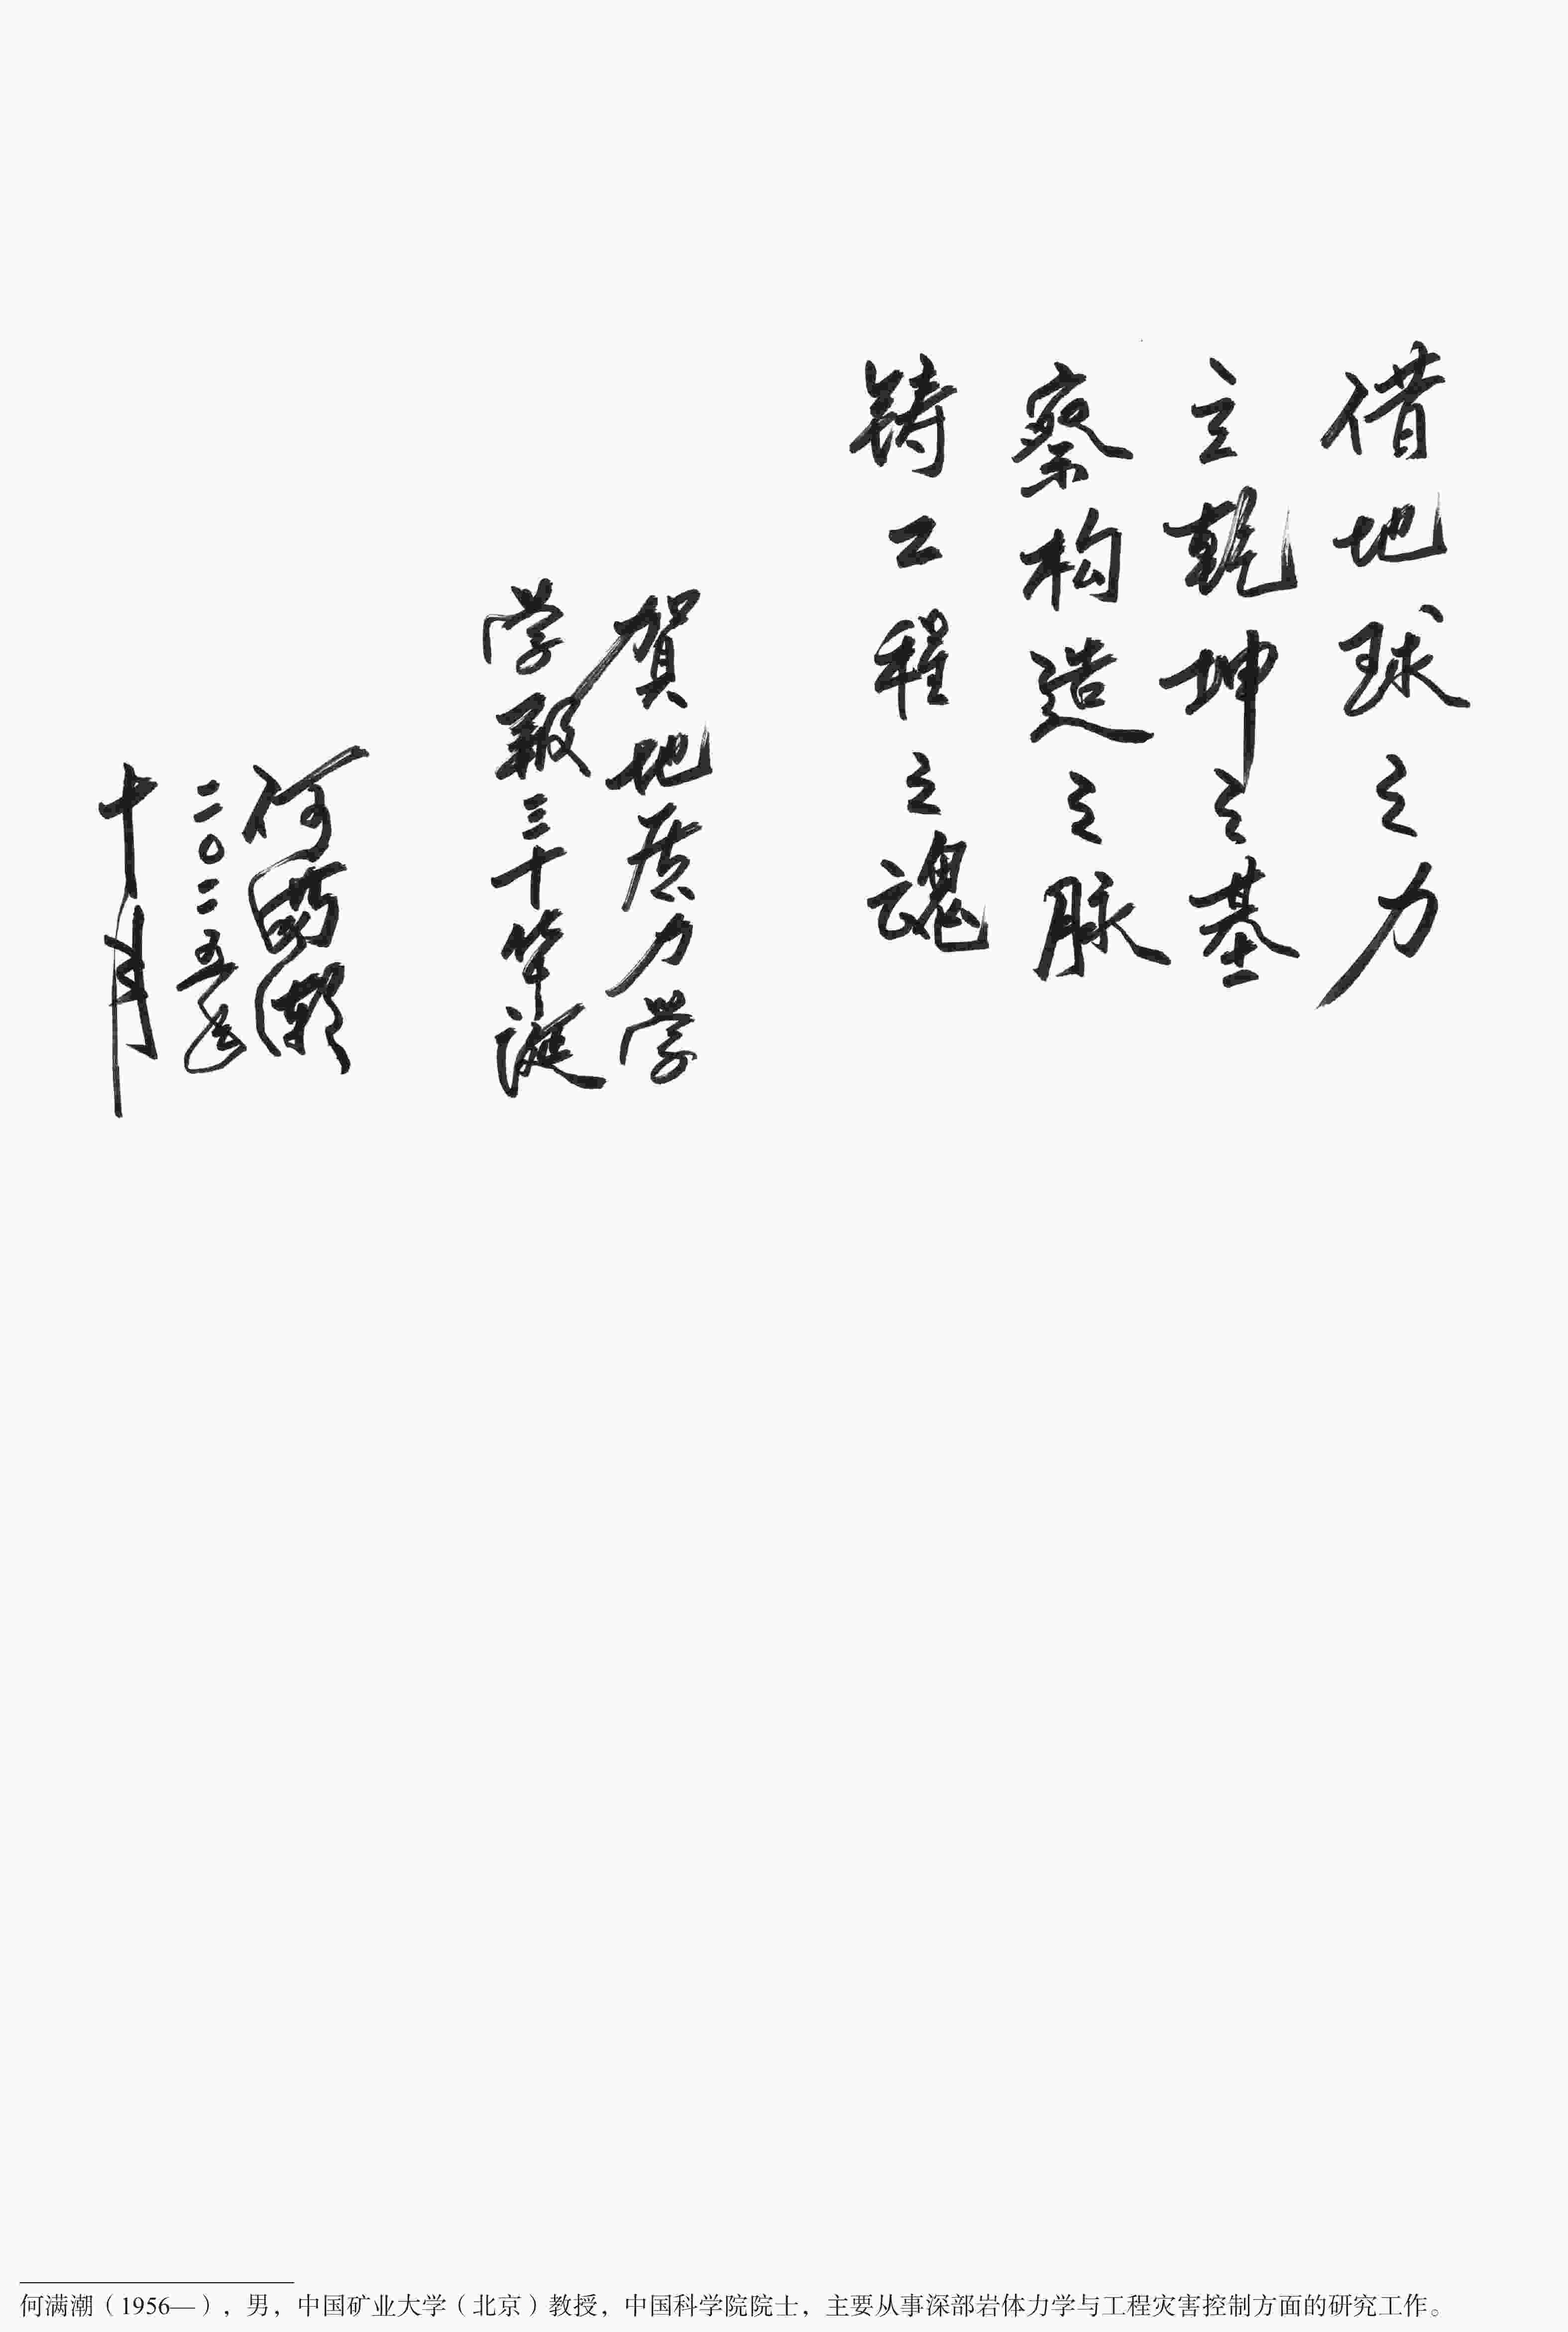 借地球之力
立乾坤之基
察构造之脉
铸工程之魂
贺地质力学
学报三十华诞
何满潮
二〇二五年
十月
何满潮（1956—），男，中国矿业大学（北京）教授，中国科学院院士，主要从事深部岩体力学与工程灾害控制方面的研究工作。